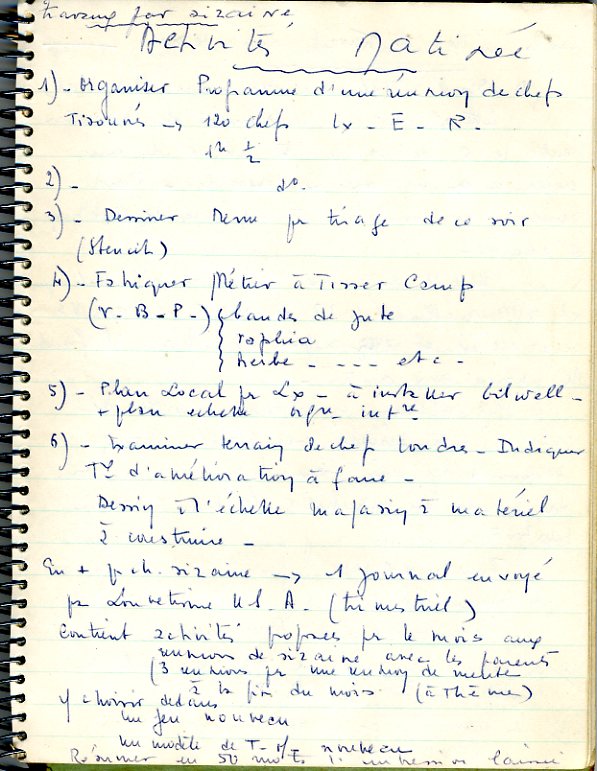 travaux par sizaine
Activités Matinée
1) - Organiser Programme d'une réunion de chefs
Tisonnés → 120 chefs Lx - E - R -
1h ½
2) - do
3) - Dessiner Menu pr tirage de ce soir
(Stencil)
4) - Fabriquer Métier à Tisser Camp
(V - B - P -) { bandes de jute
raphia
herbe - --- etc -
5) - Plan Local pr Lx - à installer bilwell -
+ plan échelle intre
6) - Examiner terrain de chef Londres - Indiquer
Tx d'amélioration à faire -
Dessin à l'échelle magasin à matériel
à construire -
En + p. ch. sizaine → 1 journal envoyé
pr Louvetisme U.S.A. (trimestriel)
Contient activités proposées pr le mois aux
réunions de sizaine avec les parents
(3 réunions pr une réunion de meute
à la fin du mois (à Thème)
y choisir dedans
un jeu nouveau
un modèle de T. M. nouveau
Résumer en 50 mots l'impression laissée